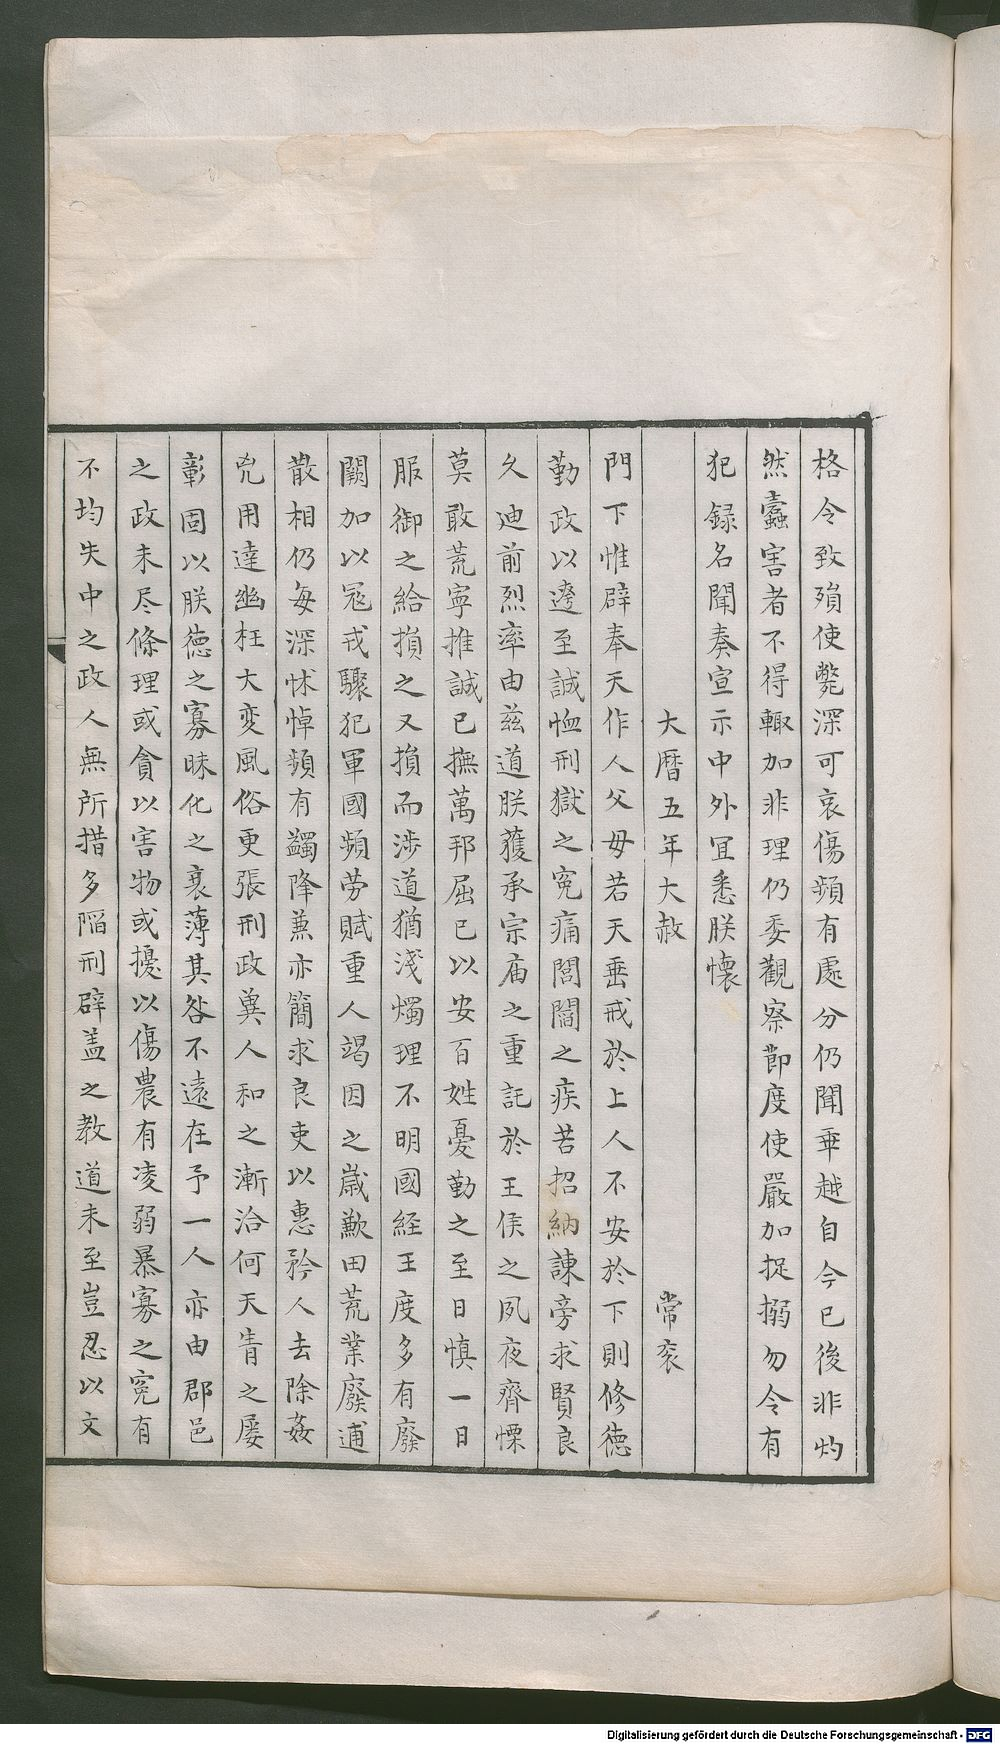 格令致殞使斃深可哀傷頻有處分仍聞乖越自今已後非灼
然蠹害者不得輙加非理仍委觀察節度使嚴加捉搦勿令有
犯録名聞奏宣示中外冝悉朕懐
大暦五年大赦 常衮
門下惟辟奉天作人父母若天垂戒於上人不安於下則修徳
勤政以邀至誠恤刑獄之寃痛閭閻之疾苦招納諌旁求賢良
久迪前烈率由兹道朕獲承宗庙之重託於王侯之夙夜齊慄
莫敢荒寧推誠已撫萬邦屈已以安百姓憂勤之至日慎一日
服御之給損之又損而渉道猶淺燭理不明國経王度多有廢
闕加以冦戎驟犯軍國頻労賦重人竭因之歳歉田荒業廢逋
散相仍每深怵悼頻有蠲降蕪亦簡求良吏以惠矜人去除姦
兇用達幽枉大変風俗更張刑政兾人和之漸洽何天青之屡
彰固以朕徳之寡昧化之裒薄其咎不遠在予一人亦由郡邑
之政未尽條理或貪以害物或擾以傷農有凌弱暴寡之寃有
不均失中之政人無所措多陷刑辟盖之教道未至豈忍以文
Digitalisierung gefördert durch die Deutsche Forschungsgemeinschaft - DFG